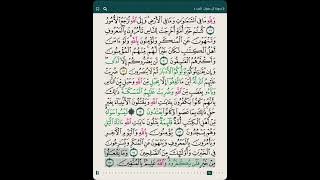 وَلِلَّهِ مَا فِي السَّمَٰوَٰتِ وَمَا فِي الْأَرْضِ وَإِلَى اللَّهِ تُرْجَعُ الْأُمُورُ
كُنتُمْ خَيْرَ أُمَّةٍ أُخْرِجَتْ لِلنَّاسِ تَأْمُرُونَ بِالْمَعْرُوفِ
وَتَنْهَوْنَ عَنِ الْمُنكَرِ وَتُؤْمِنُونَ بِاللَّهِ وَلَوْ ءَامَنَ
أَهْلُ الْكِتَٰبِ لَكَانَ خَيْرًا لَّهُم مِّنْهُمُ الْمُؤْمِنُونَ
وَأَكْثَرُهُمُ الْفَٰسِقُونَ لَن يَضُرُّوكُمْ إِلَّا أَذًى
وَإِن يُقَٰتِلُوكُمْ يُوَلُّوكُمُ الْأَدْبَارَ ثُمَّ لَا يُنصَرُونَ ضُرِبَتْ
عَلَيْهِمُ الذِّلَّةُ أَيْنَ مَا ثُقِفُوا إِلَّا بِحَبْلٍ مِّنَ اللَّهِ وَحَبْلٍ مِّنَ النَّاسِ
وَبَاءُو بِغَضَبٍ مِّنَ اللَّهِ وَضُرِبَتْ عَلَيْهِمُ الْمَسْكَنَةُ ذَٰلِكَ
بِأَنَّهُمْ كَانُوا يَكْفُرُونَ بِـَٔايَٰتِ اللَّهِ وَيَقْتُلُونَ الْأَنۢبِيَاءَ
بِغَيْرِ حَقٍّ ذَٰلِكَ بِمَا عَصَوا وَّكَانُوا يَعْتَدُونَ لَيْسُوا سَوَاءً
مِّنْ أَهْلِ الْكِتَٰبِ أُمَّةٌ قَائِمَةٌ يَتْلُونَ ءَايَٰتِ اللَّهِ ءَانَاءَ اللَّيْلِ
وَهُمْ يَسْجُدُونَ يُؤْمِنُونَ بِاللَّهِ وَالْيَوْمِ الْءَاخِرِ
وَيَأْمُرُونَ بِالْمَعْرُوفِ وَيَنْهَوْنَ عَنِ الْمُنكَرِ وَيُسَٰرِعُونَ
فِي الْخَيْرَٰتِ وَأُولَٰئِكَ مِنَ الصَّٰلِحِينَ وَمَا يَفْعَلُوا
مِنْ خَيْرٍ فَلَن يُكْفَرُوهُ وَاللَّهُ عَلِيمٌ بِالْمُتَّقِينَ